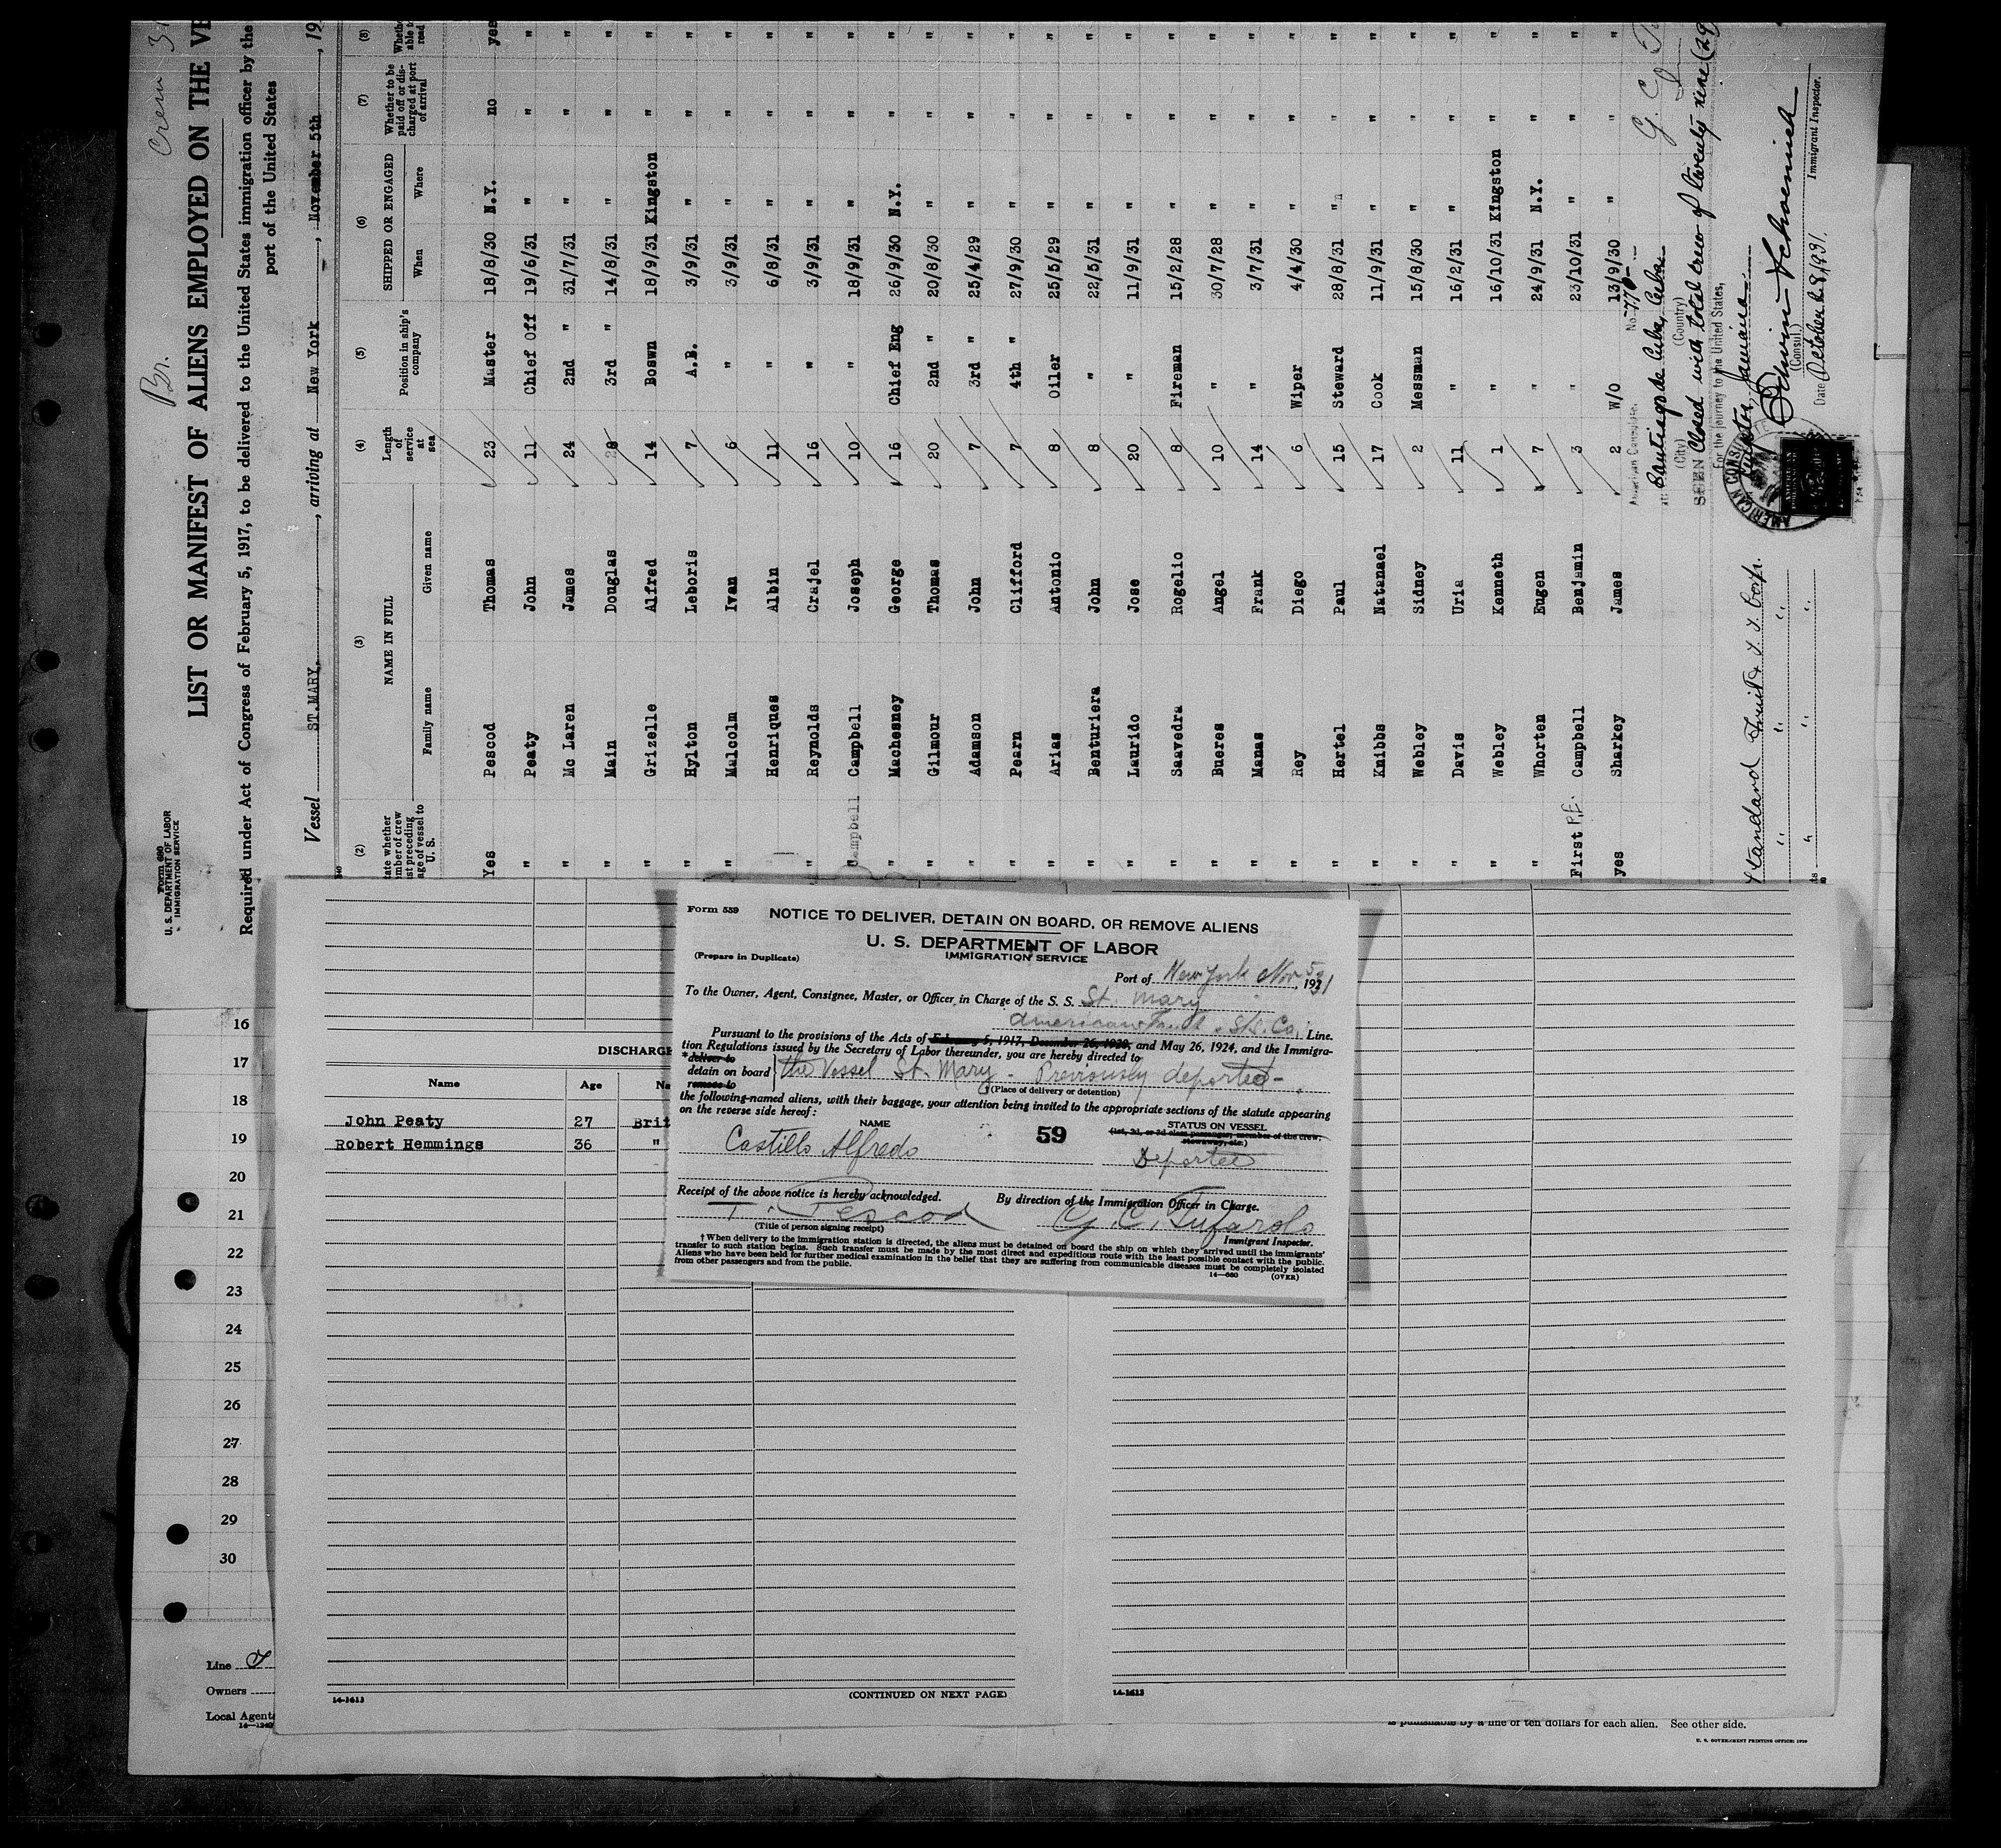 Br.
Crew
Form 680
U. S. DEPARTMENT OF LABOR
IMMIGRATION SERVICE
LIST OR MANIFEST OF ALIENS EMPLOYED ON THE
Required under Act of Congress of February 5, 1917, to be delivered to the United States immigration officer by the
port of the United States
Vessel ST.MARY, arriving at New York, November 5th, 19
(2) (3) (4) (5) (6) (7) (8)
NAME IN FULL
SHIPPED OR ENGAGED
Family name Given name
Length of service at sea
Position in ship's company
When Where
Whether to be paid off or discharged at port of arrival
Yes Pescod Thomas 23 Master 18/8/30 N.Y. no yes
" Peaty John 11 Chief Off 19/6/31 " " "
" Mc Laren James 24 2nd " 31/7/31 " " "
" Main Douglas 3rd " 14/8/31 " " "
" Grizelle Alfred 14 Boswn 18/9/31 Kingston " "
" Hylton Leboris 7 A.B. 3/9/31 " " "
" Malcolm Ivan 6 " 3/9/31 " " "
" Henriques Albin 11 " 6/8/31 " " "
" Reynolds Crajel 16 " 3/9/31 " " "
" Campbell Joseph 10 " 18/9/31 " " "
" Machesney George 16 Chief Eng 26/9/30 N.Y. " "
" Gilmour Thomas 20 2nd " 20/8/30 " " "
" Adamson John 7 3rd " 25/4/29 " " "
" Pearn Clifford 7 4th " 27/9/30 " " "
" Arias Antonio 8 Oiler 25/5/29 " " "
" Benturiera John 8 " 22/5/31 " " "
" Laurido Jose 20 " 11/9/31 " " "
" Saavedra Rogelio 8 Fireman 15/2/28 " " "
" Bueres Angel 10 " 30/7/28 " " "
" Manas Frank 14 " 3/7/31 " " "
" Rey Diego 6 Wiper 4/4/30 " " "
" Hertel Paul 15 Steward 28/8/31 " " "
" Knibbs Natanael 17 Cook 11/9/31 " " "
" Webley Sidney 2 Messman 15/8/30 " " "
" Davis Uria 11 " 16/2/31 " " "
" Webley Kenneth 1 " 16/10/31 Kingston " "
" Whorten Eugen 7 " 24/9/31 N.Y. " "
First P.E. Campbell Benjamin 3 " 23/10/31 " " "
yes Sharkey James 2 W/O 13/9/30 " " "
American Consulate. No. 770
Santiago de Cuba, Cuba
(City) (Country)
SEEN Closed with total crew of twenty nine (29)
For the journey to the United States,
Kingston, Jamaica
AMERICAN CONSULATE
Edwin Schoenrich
(Consul)
Date October 28, 1931.
Immigrant Inspector.
Standard Fruit & S. S. Corp.
16
17
18
19
20
21
22
23
24
25
26
27
28
29
30
DISCHARGE
Name Age
John Peaty 27 Brit
Robert Hemmings 36 "
Form 559
NOTICE TO DELIVER, DETAIN ON BOARD, OR REMOVE ALIENS
U. S. DEPARTMENT OF LABOR
IMMIGRATION SERVICE
(Prepare in Duplicate)
Port of New York Nov 5, 1931
To the Owner, Agent, Consignee, Master, or Officer in Charge of the S. S. St. Mary
American Fruit & S/S. Co, Line.
Pursuant to the provisions of the Acts of February 5, 1917, December 26, 1920, and May 26, 1924, and the Immigra-
tion Regulations issued by the Secretary of Labor thereunder, you are hereby directed to
*deliver to
detain on board the Vessel St. Mary - Previously deported -
remove to
†(Place of delivery or detention)
the following-named aliens, with their baggage, your attention being invited to the appropriate sections of the statute appearing
on the reverse side hereof:
NAME 59 STATUS ON VESSEL
(1st, 2d, or 3d class passenger, member of the crew,
stowaway, etc.)
Castillo Alfredo Deportee
Receipt of the above notice is hereby acknowledged. By direction of the Immigration Officer in Charge.
T. Pescod G. C. Tufarolo
(Title of person signing receipt) Immigrant Inspector.
† When delivery to the immigration station is directed, the aliens must be detained on board the ship on which they arrived until the immigrants'
transfer to such station begins. Such transfer must be made by the most direct and expeditious route with the least possible contact with the public.
Aliens who have been held for further medical examination in the belief that they are suffering from communicable diseases must be completely isolated
from other passengers and from the public.
14—660 (OVER)
Line
Owners
Local Agents
14—1240
14-1613 (CONTINUED ON NEXT PAGE) 14-1613
is punishable by a fine of ten dollars for each alien. See other side.
U. S. GOVERNMENT PRINTING OFFICE: 1929